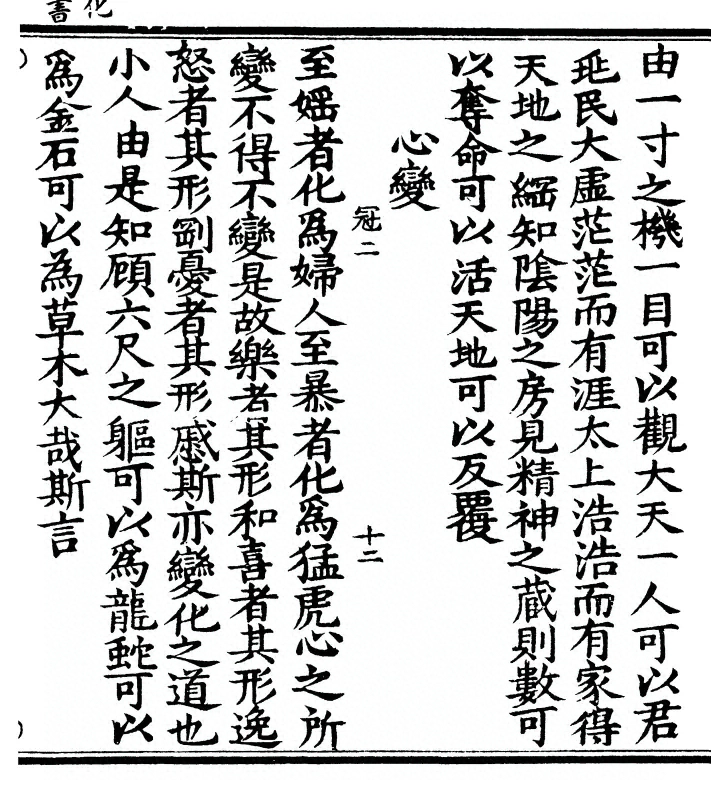 由一寸之機一目可以觀大天一人可以君
兆民大虛茫茫而有涯太上浩浩而有家得
天地之綱知陰陽之房見精神之藏則數可
以奪命可以活天地可以反覆
心變
冠二 十二
至婬者化爲婦人至暴者化爲猛虎心之所
變不得不變是故樂者其形和喜者其形逸
怒者其形剛憂者其形慼斯亦變化之道也
小人由是知顧六尺之軀可以爲龍虵可以
爲金石可以為草木大哉斯言
化書